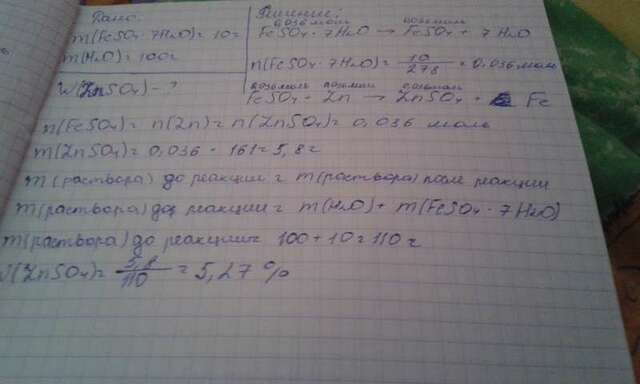 Дано:
m(FeSO4 · 7H2O) = 10г
m(H2O) = 100г
W(ZnSO4) - ?
Решение:
0,036 моль 0,036 моль
FeSO4 · 7H2O → FeSO4 + 7 H2O
n(FeSO4 · 7H2O) = 10/278 = 0,036 моль
0,036 моль 0,036 моль 0,036 моль
FeSO4 + Zn → ZnSO4 + Fe
n(FeSO4) = n(Zn) = n(ZnSO4) = 0,036 моль
m(ZnSO4) = 0,036 · 161 = 5,8 г
m(раствора) до реакции = m(раствора) после реакции
m(раствора) до реакции = m(H2O) + m(FeSO4 · 7H2O)
m(раствора) до реакции = 100 + 10 = 110 г
W(ZnSO4) = 5,8/110 = 5,27 %